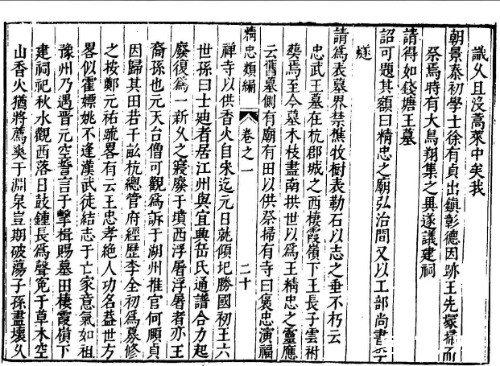 識久且沒蒿萊中矣我
朝景泰初學士徐有貞出鎮彰德因跡王先塚掃而
祭焉時有大鳥翔集之異遂議建祠
請得如錢塘王墓
詔可題其額曰精忠之廟弘治間又以工部尚書
請為表墓界禁樵牧樹表勒石以志之垂不朽云
忠武王墓在杭郡城之西棲霞嶺下王長子雲祔
葬焉至今墓木枝盡南拱世以為王精忠之靈應
云舊墓側有廟有田以供祭掃有寺曰褒忠演福
精忠類編 卷之一 二十
禪寺以供香火自宋迄元日就傾圮勝國初王六
世孫曰士廸者居江州與宜興岳氏通譜合力起
廢復為一新久之寢廢于墳西浮屠浮屠者亦王
裔孫也元天台僧可觀為訴于湖州推官何願貞
因歸其田若干畝杭總管府經歷李全初為墓修
之按鄭元祐疏畧有云王忠孝絕人功名益世方
畧似霍嫖姚不逢漢武徒結志于亡家意氣如祖
豫州乃遇晉元空誓言于擊楫賜墓田棲霞嶺下
建祠祀秋水觀西落日鼓鐘長為聲寃于草木空
山香火猶將薦爽于淵泉豈期破蕩子孫盡壞久